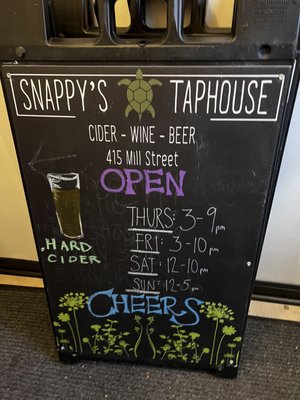 SNAPPY'S TAPHOUSE
CIDER - WINE - BEER
415 Mill Street
OPEN
THURS: 3-9pm
FRI: 3-10pm
SAT: 12-10pm
SUN: 12-5pm
HARD
CIDER
CHEERS